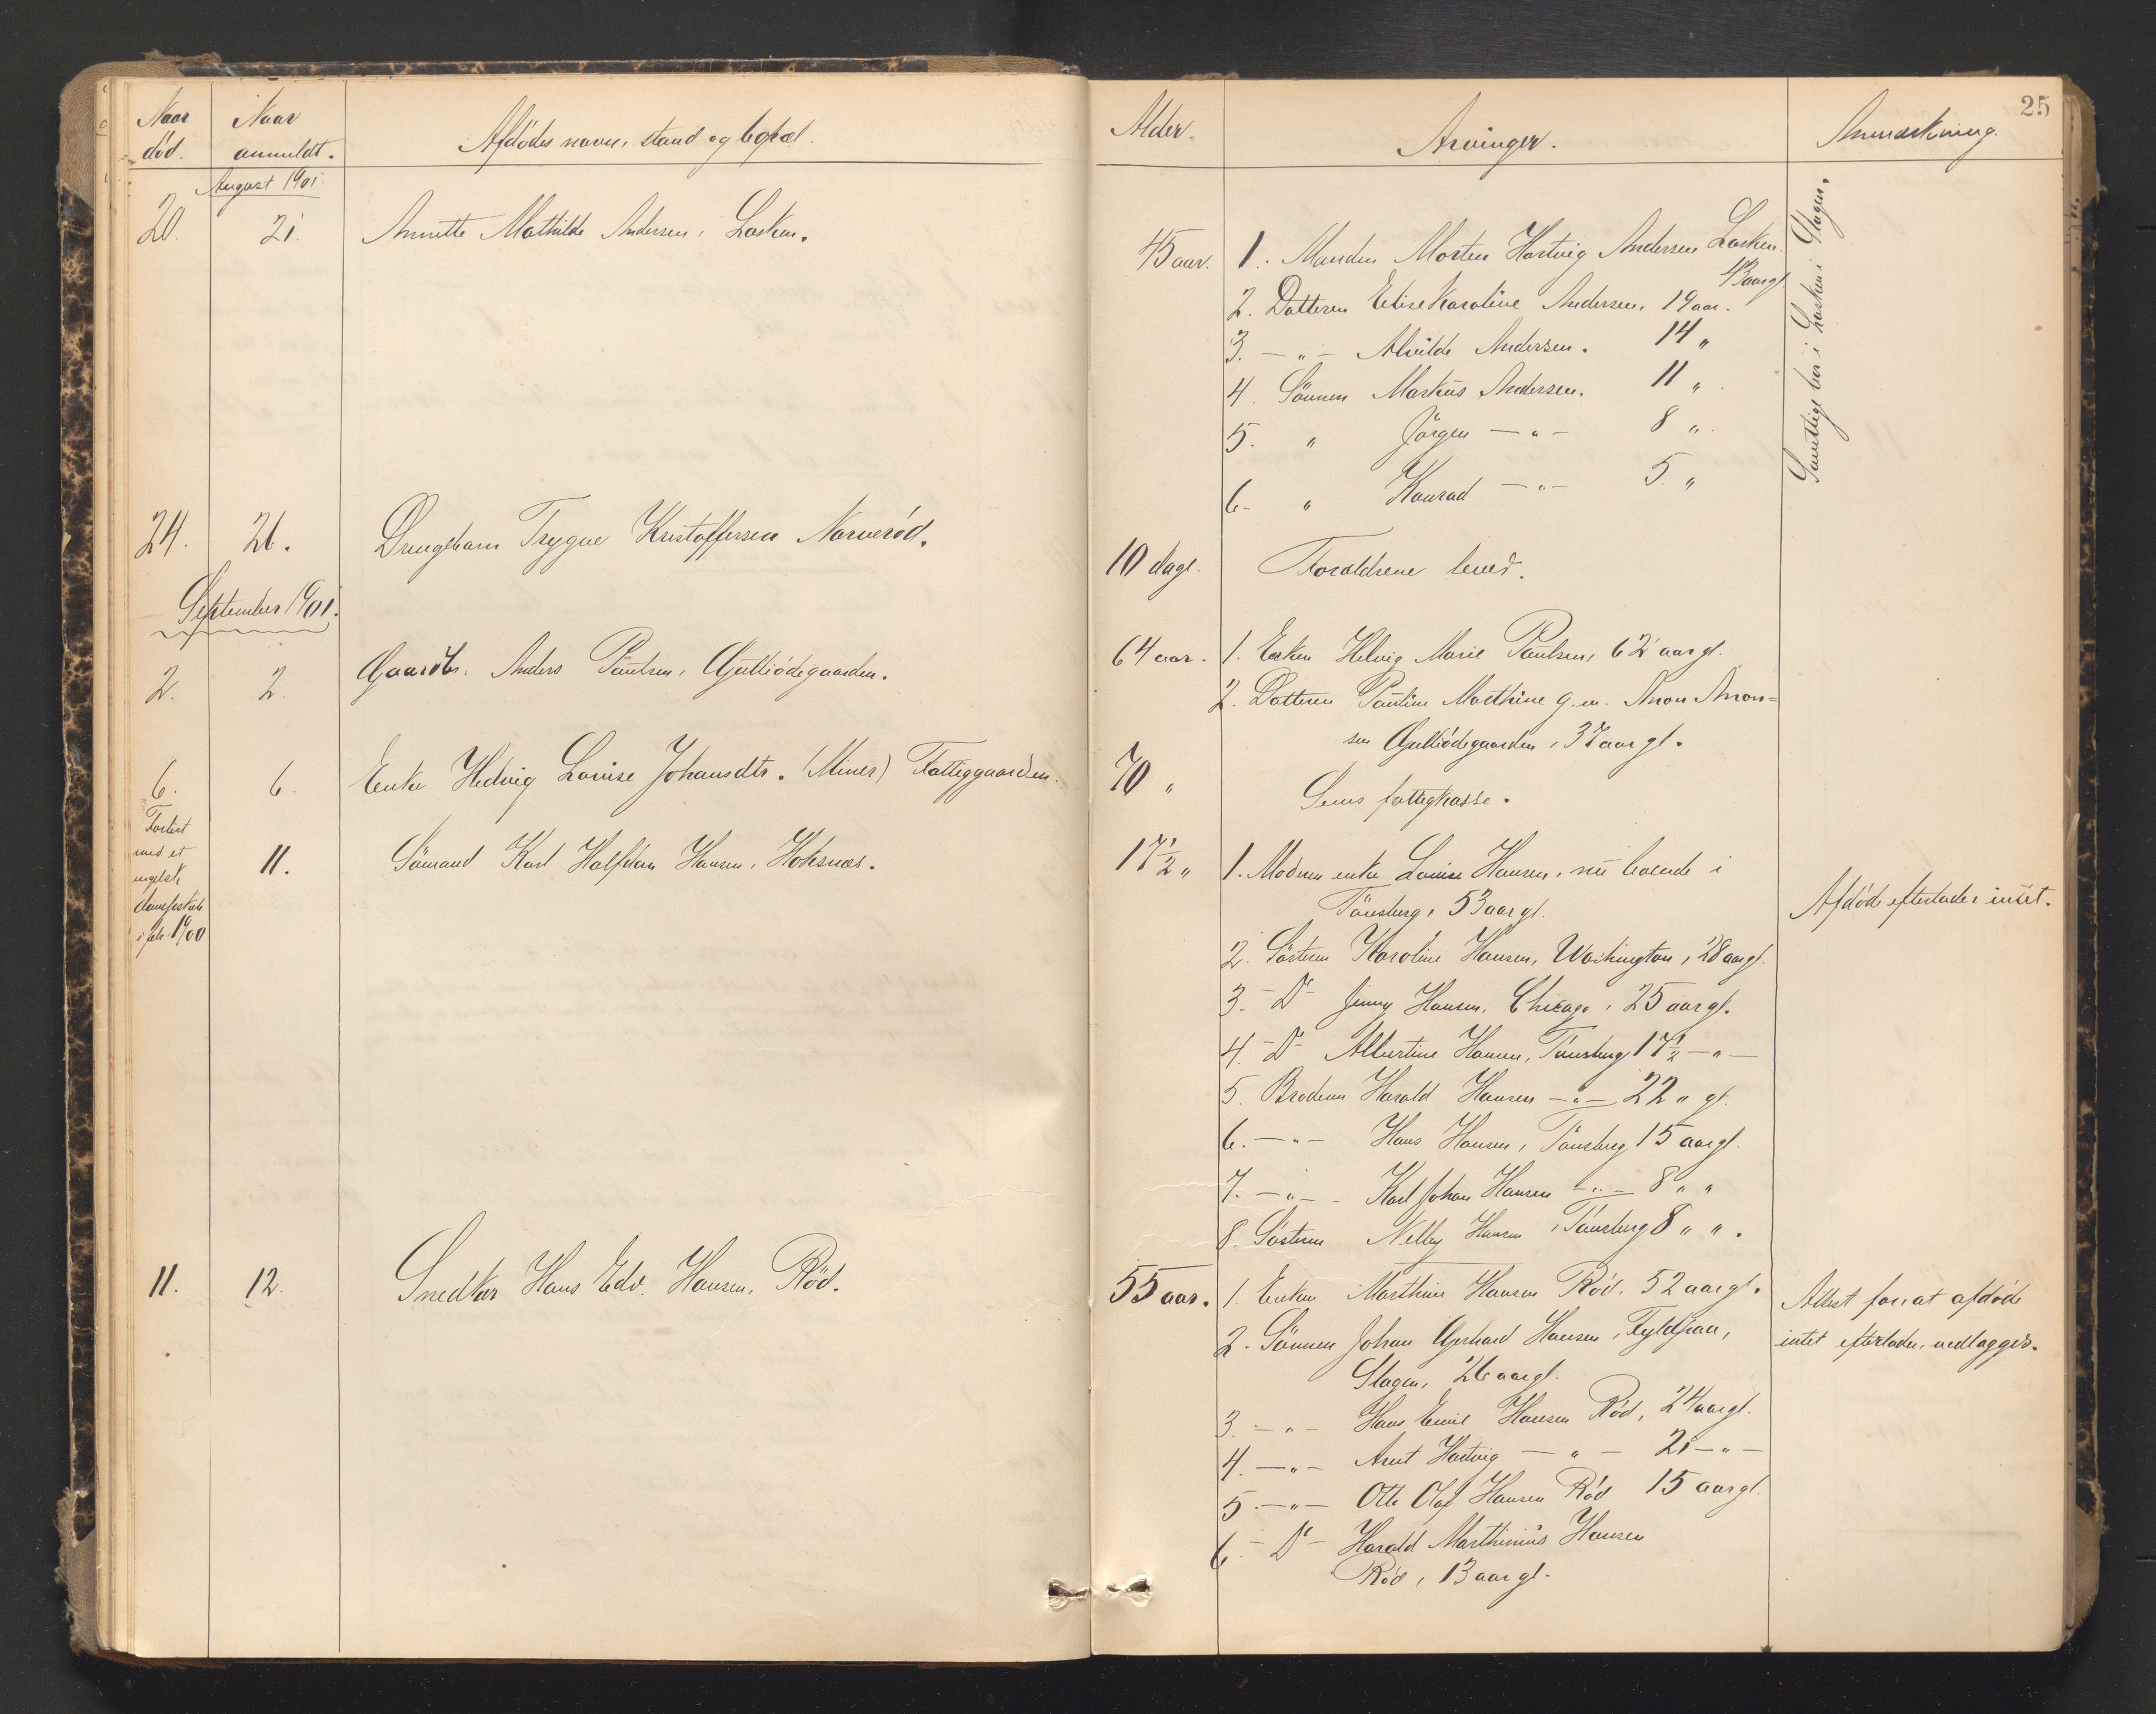 Naar død.
Naar anmeldt.
Afdødes navn, stand og bopæl.
August 1901.
20. 21. Annette Mathilde Andersen, Lasken.
24. 26. Drengebarn Trygve Kristoffersen Narverød.
September 1901.
2. 2. Gaardbr. Anders Paulsen,
6. 6. Enke Hedvig Lovise Johansdtr. (Miner) Fattiggaarden.
Forlist
med et
engelsk
dampskib
i feb. 1900
11. Sømand Karl Halfdan Hansen, Hoksnæs.
11. 12. Snedker Hans Edv. Hansen, Rød.
25
Alder.
Arvinger.
Anmærkning.
45 aar. 1. Manden Morten Hartvig Andersen Lasken.
43 aar gl.
2. Datteren Elise Karoline Andersen, 19 aar.
3. — " — Alvilde Andersen. 14 "
4. Sønnen Markus Andersen. 11 "
5. " Jörgen — " — 8 "
6. " Konrad — " — 5 "
Samtlige bor i Lasken i Slagen.
10 dage. Forældrene lever.
64 aar. 1. Enken Helvig Marie Paulsen, 62 aar gl.
2. Datteren Pauline Marthine g. m. Anon Anon=
sen 37 aar gl.
70 " Sems fattigkasse.
17½ " 1. Moderen enke Lovise Hansen, nu boende i
Tönsberg, 53 aar gl.
Afdøde efterlader intet.
2. Søsteren Karoline Hansen, Washington, 28 aar gl.
3. - Do - Jenny Hansen, Chicago, 25 aar gl.
4. - Do - Albertine Hansen, Tönsberg 17½ — " —
5. Broderen Harald Hansen — " — 22 " gl.
6. — " — Hans Hansen, Tönsberg 15 aar gl.
7. — " — Karl Johan Hansen — " — 8 " "
8. Søsteren Nelly Hansen, Tönsberg 8 " ".
55 aar. 1. Enken Marthine Hansen Rød, 52 aar gl.
2. Sønnen Johan Gerhard Hansen,
Slagen, 26 aar gl.
Attest for at afdøde
intet efterlader, vedlægges.
3. — " — Hans Emil Hansen Rød, 24 aar gl.
4. — " — Arnt Hartvig — " — 21 — " —
5. — " — Otto Olaf Hansen Rød 15 aar gl.
6. - Do - Harald Marthinius Hansen
Rød, 13 aar gl.